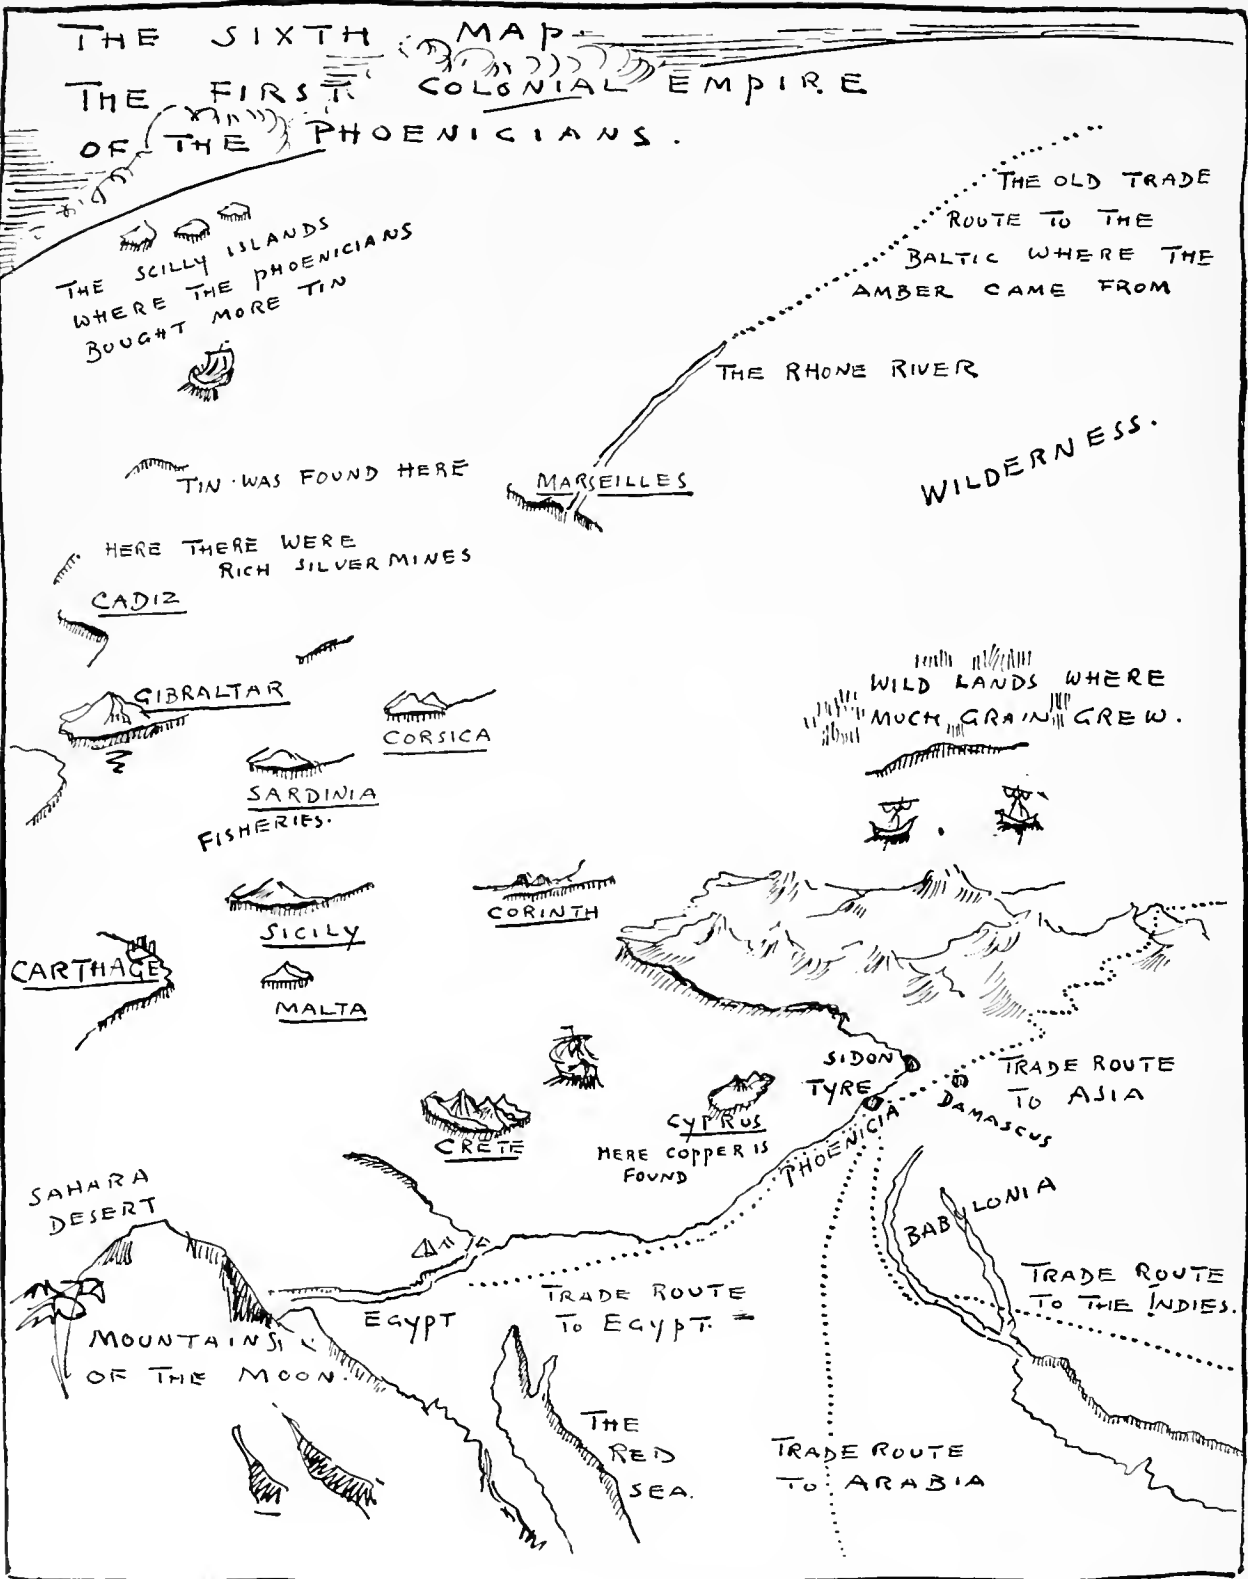 THE SIXTH MAP.
THE FIRST COLONIAL EMPIRE
OF THE PHOENICIANS.
THE OLD TRADE
ROUTE TO THE
BALTIC WHERE THE
AMBER CAME FROM
THE SCILLY ISLANDS
WHERE THE PHOENICIANS
BOUGHT MORE TIN
THE RHONE RIVER
WILDERNESS.
TIN WAS FOUND HERE
MARSEILLES
HERE THERE WERE
RICH SILVER MINES
CADIZ
GIBRALTAR
CORSICA
WILD LANDS WHERE
MUCH GRAIN GREW.
SARDINIA
FISHERIES.
SICILY
CORINTH
CARTHAGE
MALTA
SIDON
TYRE
TRADE ROUTE
TO ASIA
DAMASCUS
CRETE
CYPRUS
HERE COPPER IS
FOUND
PHOENICIA
SAHARA
DESERT
BABYLONIA
EGYPT
TRADE ROUTE
TO EGYPT.
TRADE ROUTE
TO THE INDIES.
MOUNTAINS
OF THE MOON.
THE
RED
SEA.
TRADE ROUTE
TO ARABIA